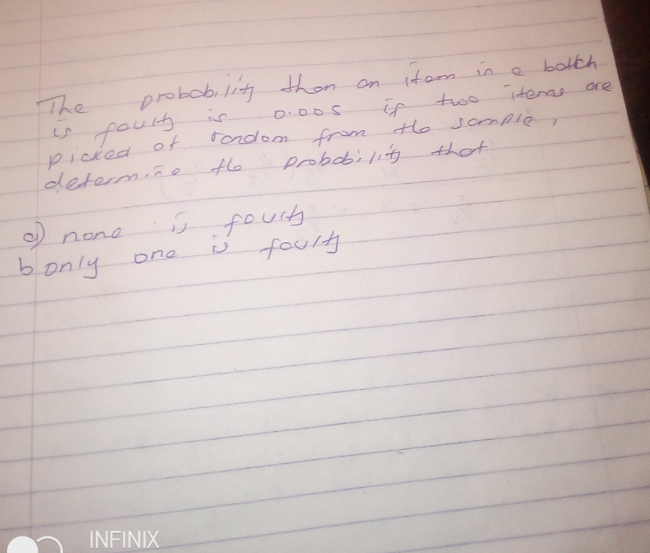 The probability than an item in a batch
is faulty is 0.005 if two items are
picked at random from the sample,
determine the probability that
a) none is faulty
b only one is faulty
INFINIX